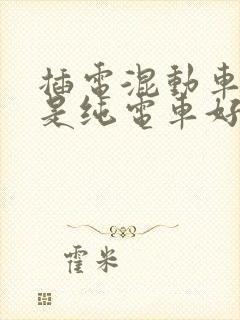 插電混動車
是純電車好
霍米